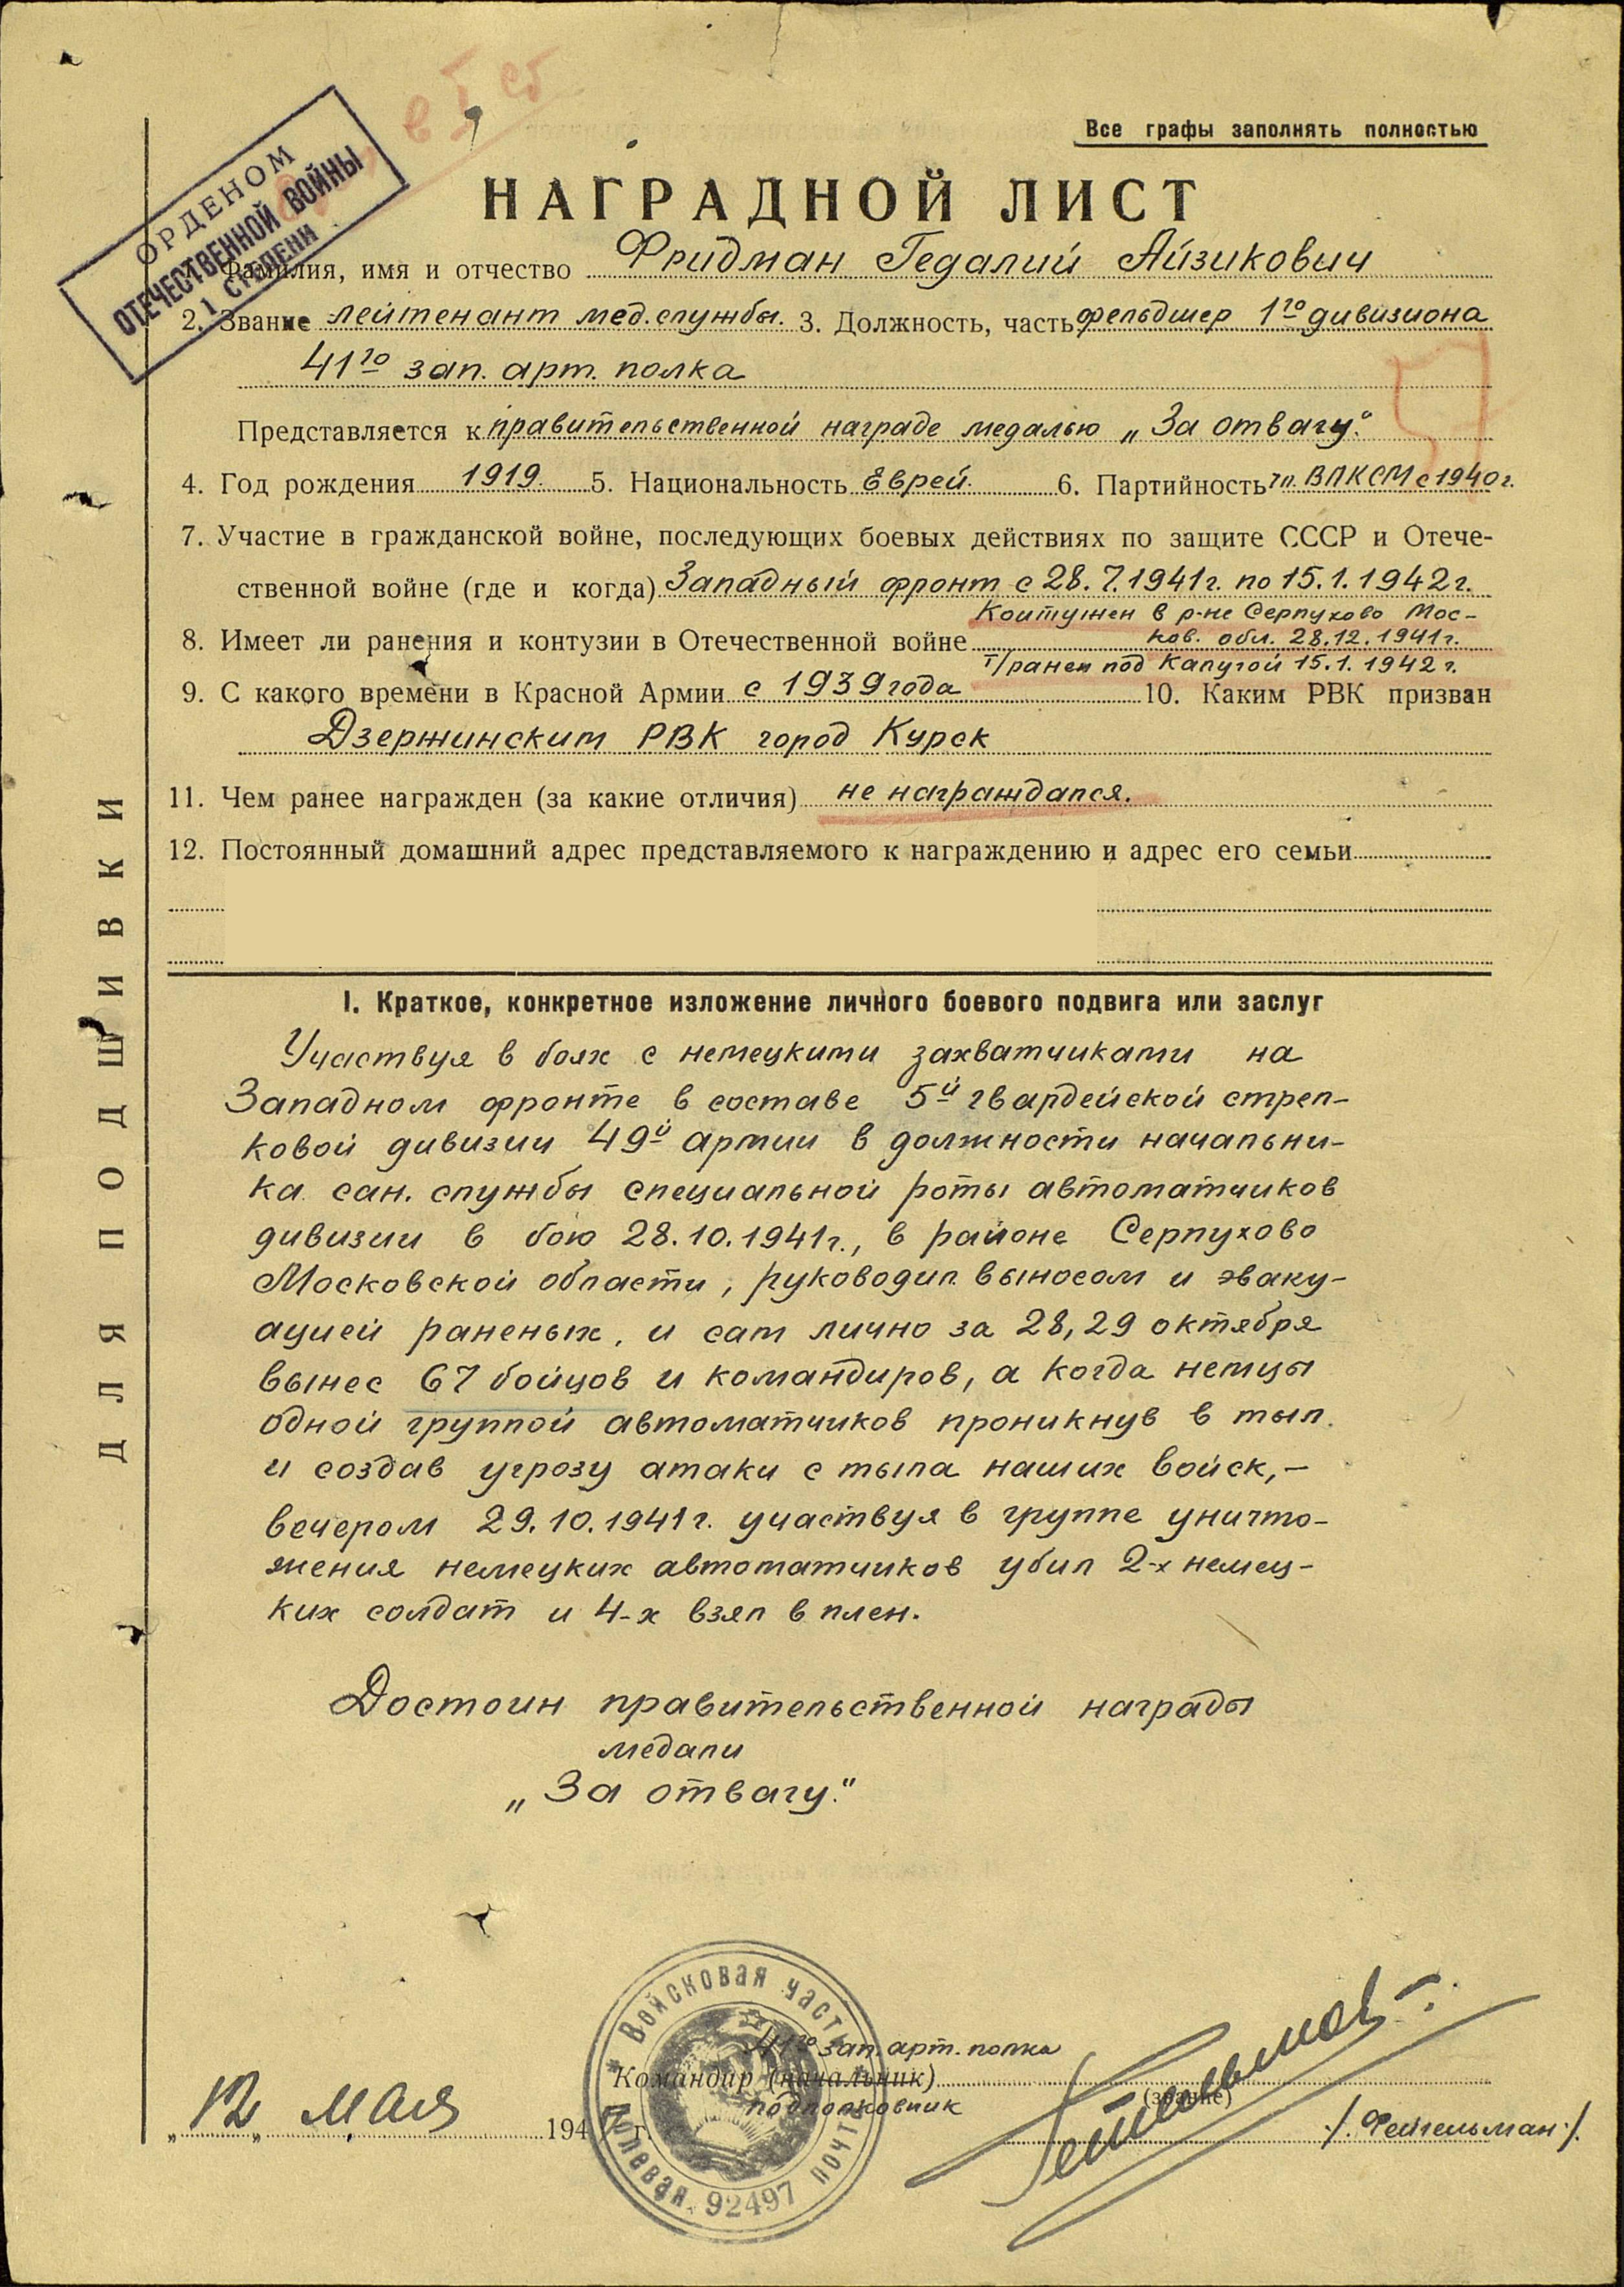 Все графы заполнять полностью
ОРДЕНОМ
ОТЕЧЕСТВЕННОЙ ВОЙНЫ
1 СТЕПЕНИ
НАГРАДНОЙ ЛИСТ
Фамилия, имя и отчество Фридман Гедалий Айзикович
2. Звание лейтенант мед. службы. 3. Должность, часть фельдшер 1го дивизиона
41го зап. арт. полка
Представляется к правительственной награде медалью „За отвагу."
4. Год рождения 1919. 5. Национальность Еврей. 6. Партийность чл. ВЛКСМ с 1940 г.
7. Участие в гражданской войне, последующих боевых действиях по защите СССР и Отече-
ственной войне (где и когда) Западный фронт с 28.7.1941г. по 15.1.1942г.
Контужен в р-не Серпухово Мос-
8. Имеет ли ранения и контузии в Отечественной войне ков. обл. 28.12.1941г.
т/ранен под Калугой 15.1.1942 г.
9. С какого времени в Красной Армии с 1939 года 10. Каким РВК призван
Дзержинским РВК город Курск
11. Чем ранее награжден (за какие отличия) не награждался.
12. Постоянный домашний адрес представляемого к награждению и адрес его семьи
ДЛЯ ПОДШИВКИ
I. Краткое, конкретное изложение личного боевого подвига или заслуг
Участвуя в боях с немецкими захватчиками на
Западном фронте в составе 5й гвардейской стрел-
ковой дивизии 49й армии в должности начальни-
ка сан. службы специальной роты автоматчиков
дивизии в бою 28.10.1941г., в районе Серпухово
Московской области, руководил выносом и эваку-
ацией раненых, и сам лично за 28, 29 октября
вынес 67 бойцов и командиров, а когда немцы
одной группой автоматчиков проникнув в тыл
и создав угрозу атаки с тыла наших войск,-
вечером 29.10.1941г. участвуя в группе уничто-
жения немецких автоматчиков убил 2-х немец-
ких солдат и 4-х взял в плен.
Достоин правительственной награды
медали
„За отвагу."
41го зап. арт. полка
Командир (начальник)
подполковник
(звание)
/. Фейгельман./.
„12„ мая 194 г.
Войсковая часть
Полевая почта
92497